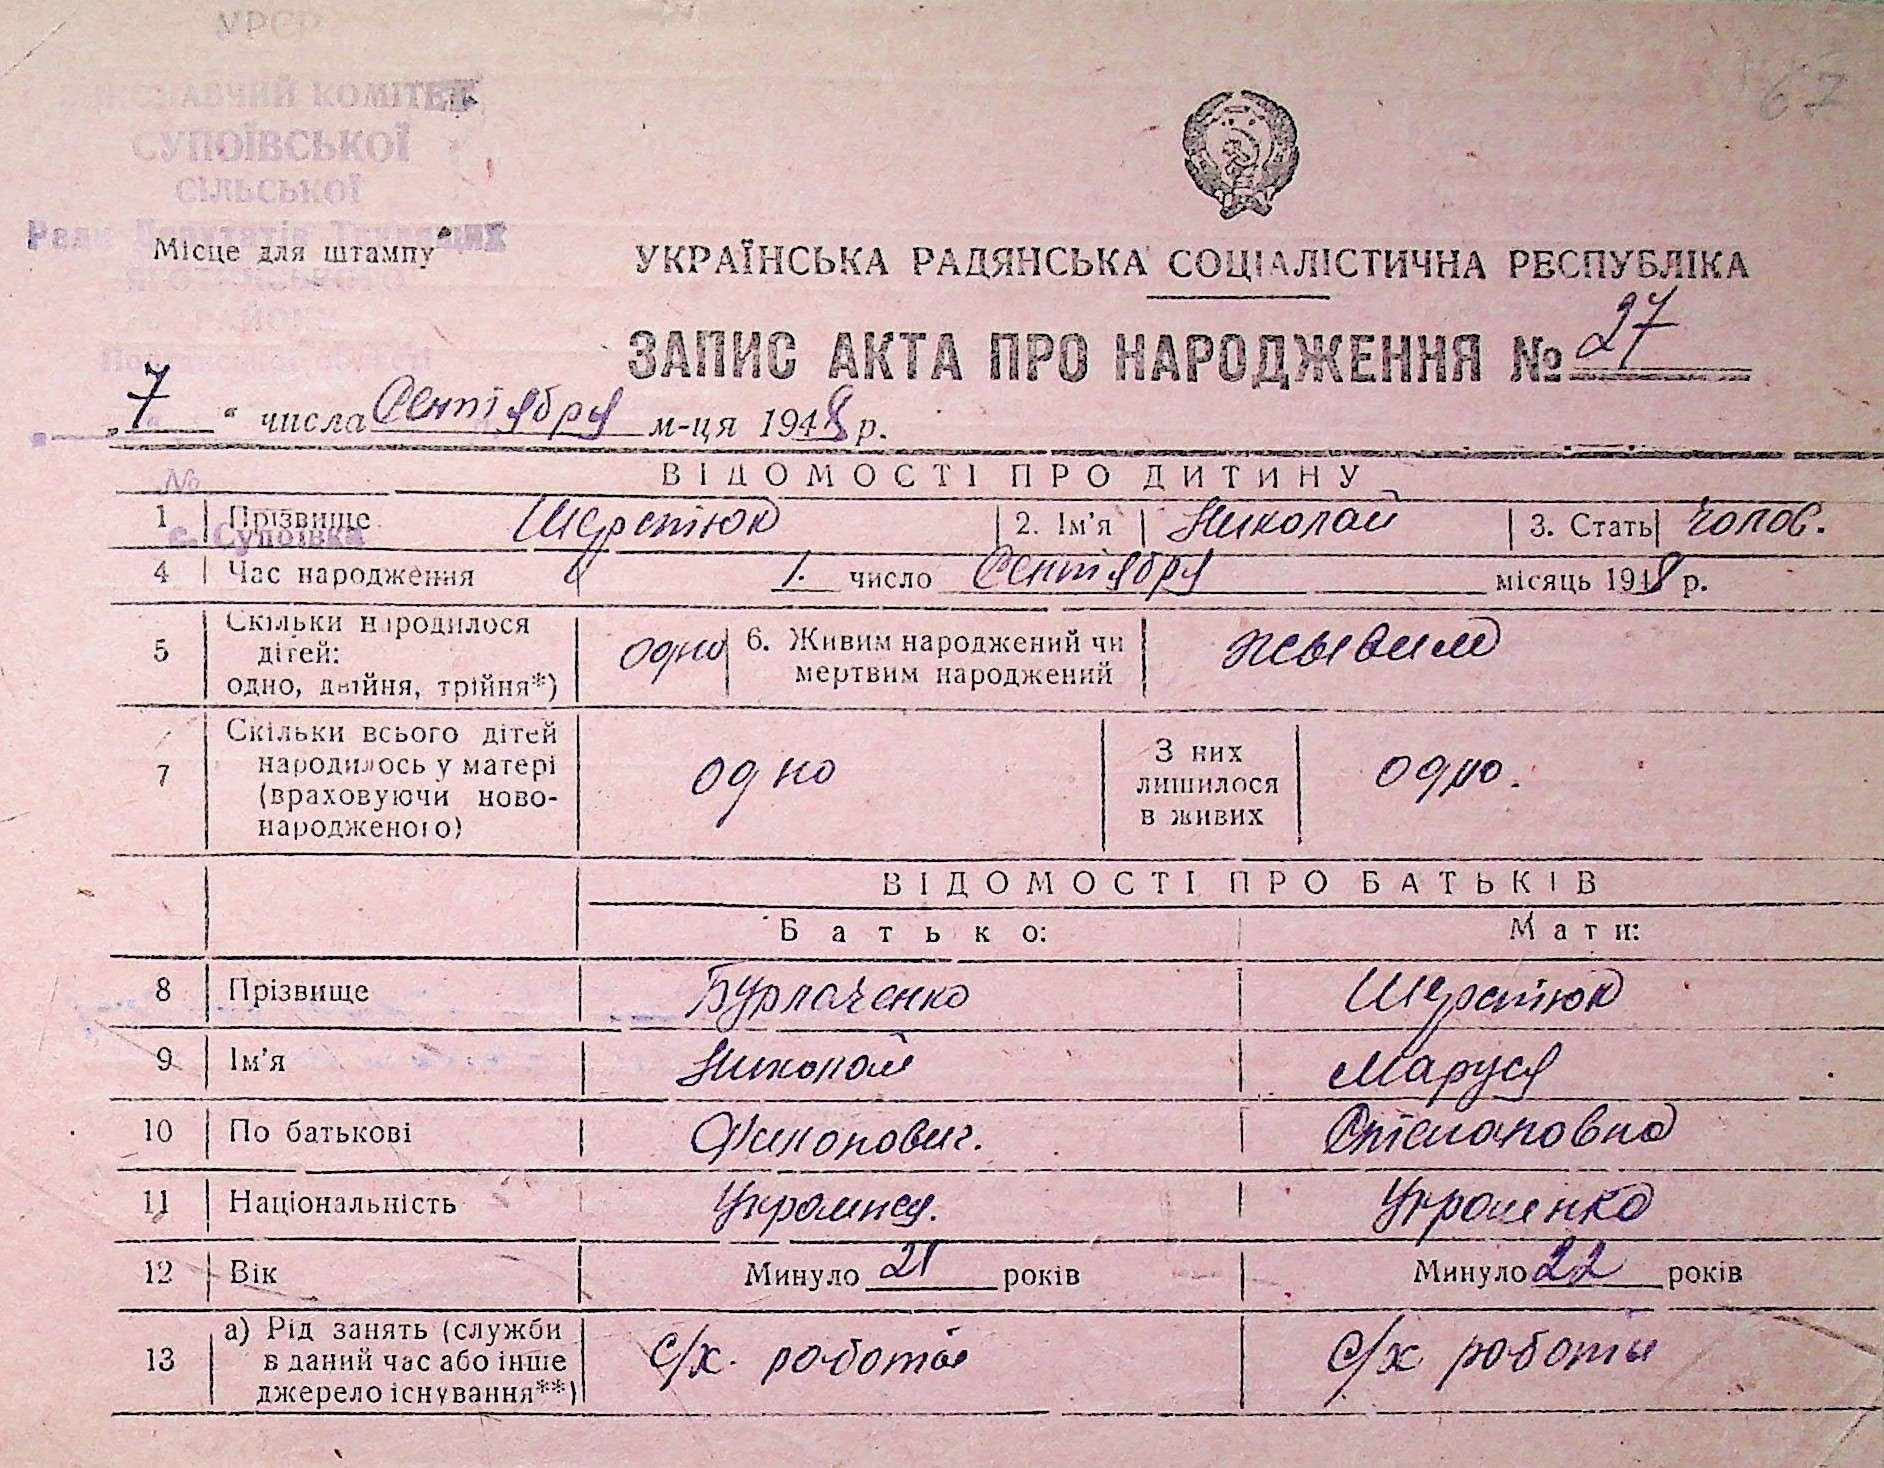 УРСР
67
ВИКОНАВЧИЙ КОМІТЕТ
СУПОЇВСЬКОЇ
СІЛЬСЬКОЇ
Ради Депутатів Трудящих
Місце для штампу
УКРАЇНСЬКА РАДЯНСЬКА СОЦІАЛІСТИЧНА РЕСПУБЛІКА
ЗАПИС АКТА ПРО НАРОДЖЕННЯ № 27
„7“ числа Сентября м-ця 1948 р.
ВІДОМОСТІ ПРО ДИТИНУ
№
1 Прізвище Шерстюк 2. Ім'я Николай 3. Стать чолов.
с. Супоївка
4 Час народження 1. число Сентября місяць 1948 р.
5 Скільки народилося дітей: одно, двійня, трійня*) одно 6. Живим народжений чи мертвим народжений жывим
7 Скільки всього дітей народилось у матері (враховуючи ново-народженого) одно З них лишилося в живих одно.
ВІДОМОСТІ ПРО БАТЬКІВ
Батько: Мати:
8 Прізвище Бурлаченко Шерстюк
9 Ім'я Николай Маруся
10 По батькові Филипович. Степановна
11 Національність Украинец. Украенка
12 Вік Минуло 21 років Минуло 22 років
13 а) Рід занять (служби в даний час або інше джерело існування**) с/х. роботы с/х роботы